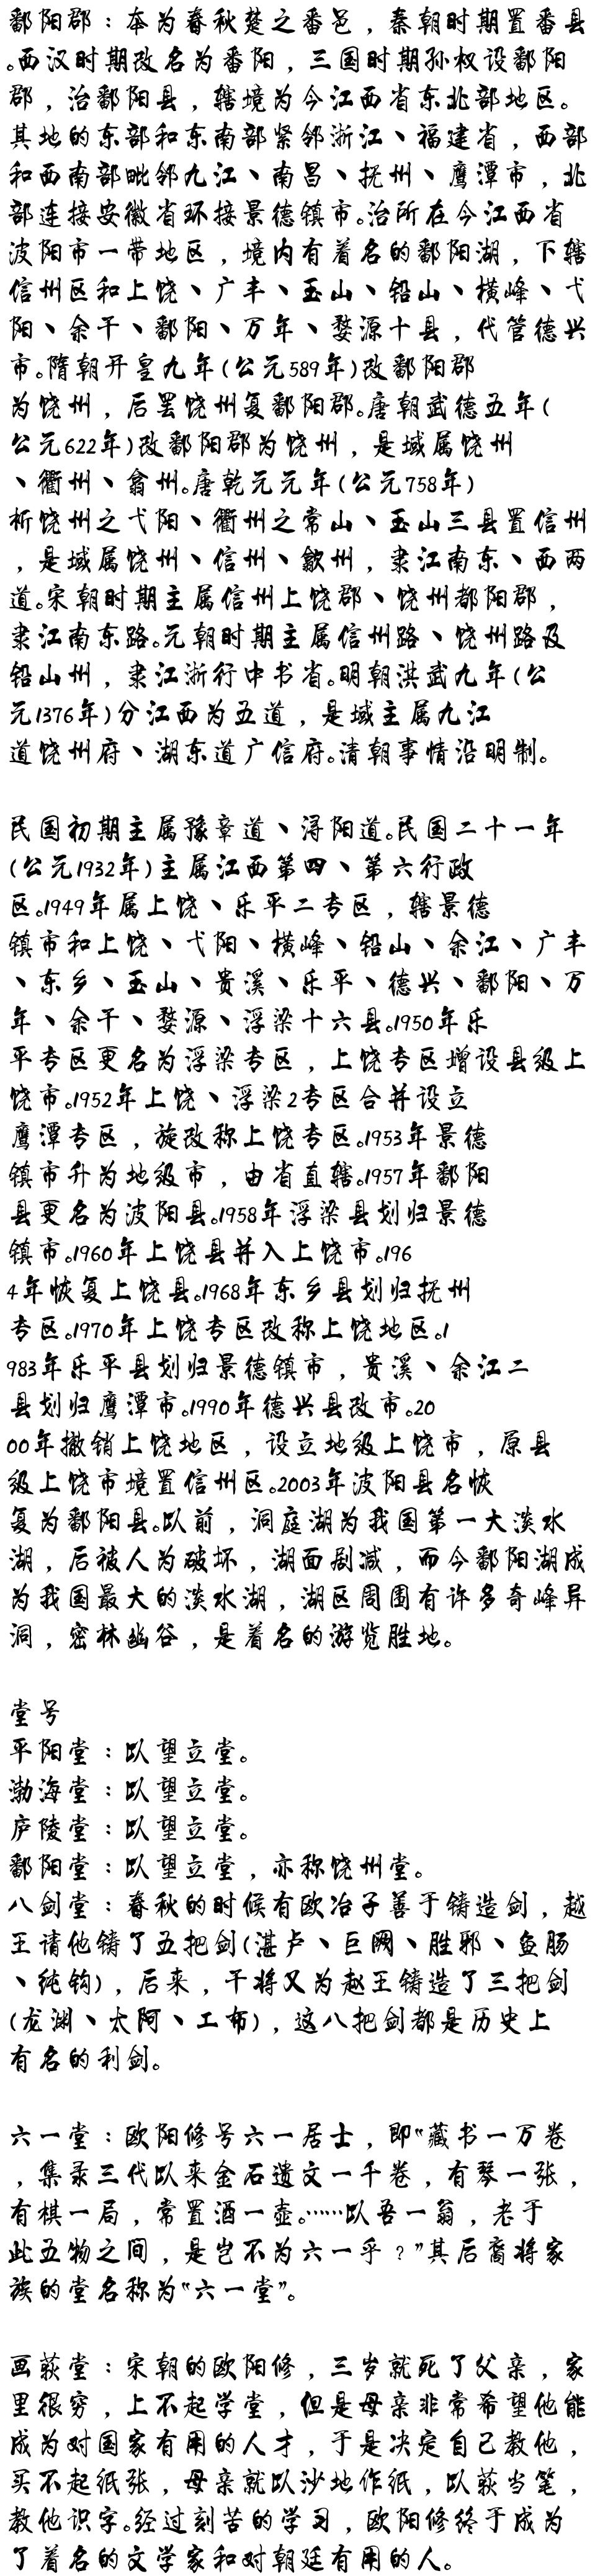 鄱阳郡：本为春秋楚之番邑，秦朝时期置番县
。西汉时期改名为番阳，三国时期孙权设鄱阳
郡，治鄱阳县，辖境为今江西省东北部地区。
其地的东部和东南部紧邻浙江、福建省，西部
和西南部毗邻九江、南昌、抚州、鹰潭市，北
部连接安徽省环接景德镇市。治所在今江西省
波阳市一带地区，境内有着名的鄱阳湖，下辖
信州区和上饶、广丰、玉山、铅山、横峰、弋
阳、余干、鄱阳、万年、婺源十县，代管德兴
市。隋朝开皇九年(公元589年)改鄱阳郡
为饶州，后罢饶州复鄱阳郡。唐朝武德五年(
公元622年)改鄱阳郡为饶州，是域属饶州
、衢州、翕州。唐乾元元年(公元758年)
析饶州之弋阳、衢州之常山、玉山三县置信州
，是域属饶州、信州、歙州，隶江南东、西两
道。宋朝时期主属信州上饶郡、饶州都阳郡，
隶江南东路。元朝时期主属信州路、饶州路及
铅山州，隶江浙行中书省。明朝洪武九年(公
元1376年)分江西为五道，是域主属九江
道饶州府、湖东道广信府。清朝事情沿明制。
民国初期主属豫章道、浔阳道。民国二十一年
(公元1932年)主属江西第四、第六行政
区。1949年属上饶、乐平二专区，辖景德
镇市和上饶、弋阳、横峰、铅山、余江、广丰
、东乡、玉山、贵溪、乐平、德兴、鄱阳、万
年、余干、婺源、浮梁十六县。1950年乐
平专区更名为浮梁专区，上饶专区增设县级上
饶市。1952年上饶、浮梁2专区合并设立
鹰潭专区，旋改称上饶专区。1953年景德
镇市升为地级市，由省直辖。1957年鄱阳
县更名为波阳县。1958年浮梁县划归景德
镇市。1960年上饶县并入上饶市。196
4年恢复上饶县。1968年东乡县划归抚州
专区。1970年上饶专区改称上饶地区。1
983年乐平县划归景德镇市，贵溪、余江二
县划归鹰潭市。1990年德兴县改市。20
00年撤销上饶地区，设立地级上饶市，原县
级上饶市境置信州区。2003年波阳县名恢
复为鄱阳县。以前，洞庭湖为我国第一大淡水
湖，后被人为破坏，湖面剧减，而今鄱阳湖成
为我国最大的淡水湖，湖区周围有许多奇峰异
洞，密林幽谷，是着名的游览胜地。
堂号
平阳堂：以望立堂。
渤海堂：以望立堂。
庐陵堂：以望立堂。
鄱阳堂：以望立堂，亦称饶州堂。
八剑堂：春秋的时候有欧冶子善于铸造剑，越
王请他铸了五把剑(湛卢、巨阙、胜邪、鱼肠
、纯钩)，后来，干将又为赵王铸造了三把剑
(龙渊、太阿、工布)，这八把剑都是历史上
有名的利剑。
六一堂：欧阳修号六一居士，即“藏书一万卷
，集录三代以来金石遗文一千卷，有琴一张，
有棋一局，常置酒一壶。……以吾一翁，老于
此五物之间，是岂不为六一乎？”其后裔将家
族的堂名称为“六一堂”。
画荻堂：宋朝的欧阳修，三岁就死了父亲，家
里很穷，上不起学堂，但是母亲非常希望他能
成为对国家有用的人才，于是决定自己教他，
买不起纸张，母亲就以沙地作纸，以荻当笔，
教他识字。经过刻苦的学习，欧阳修终于成为
了着名的文学家和对朝廷有用的人。